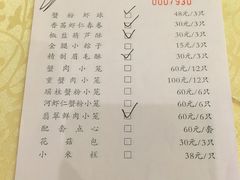 0007930
蟹粉虾球 ☑ 48元/3只
香菇虾仁春卷 ☑ 30元/3只
椒盐葫芦酥 ☑ 30元/3只
金腿小粽子 □ 15元/3只
精制眉毛酥 ☑ 30元/3只
蟹肉小笼 □ 60元/12只
童蟹肉小笼 □ 100元/12只
瑶柱蟹粉小笼 □ 60元/6只
河虾仁蟹粉小笼 □ 60元/6只
翡翠鲜肉小笼 ☑ 60元/6只
配套点心 □ 60元/套
花菇包 □ 30元/3只
小米糕 □ 38元/只